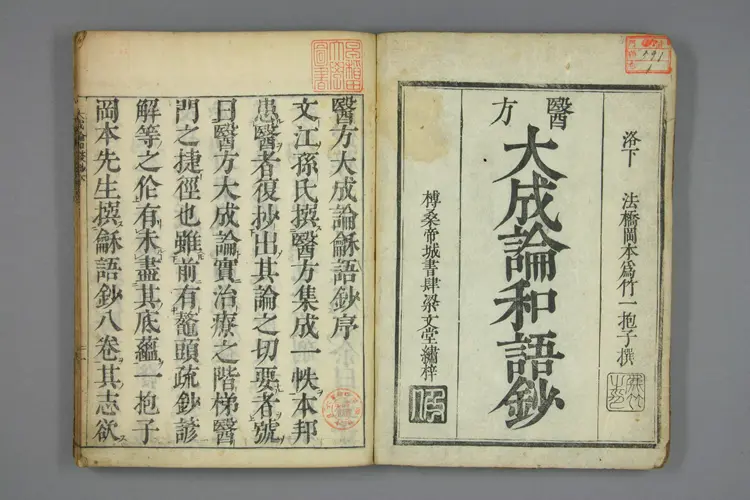 洛下 法橋岡本爲竹一抱子撰
醫方
大成論和語鈔
榑桑帝城書肆梁文堂繡梓
醫方大成論龢語鈔序
文江孫氏撰醫方集成一帙本邦
患醫者復抄出其論之切要者號
曰醫方大成論實治療之階梯醫
門之捷徑也雖前有鼇頭疏鈔諺
解等之伦有未盡其底蘊一抱子
岡本先生撰龢語鈔八卷其志欲